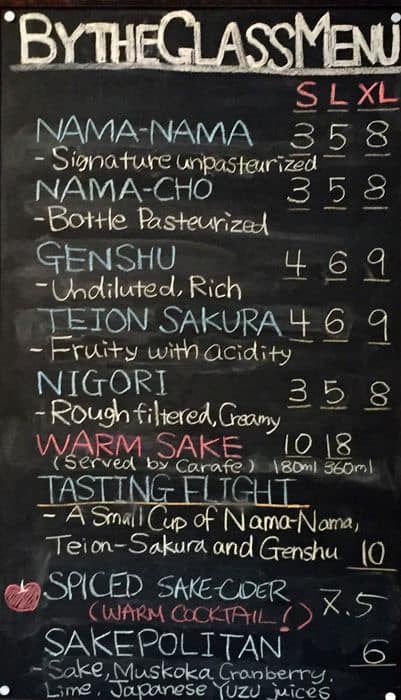 BY THE GLASS MENU
S L XL
NAMA-NAMA 3 5 8
- Signature unpasteurized
NAMA-CHO 3 5 8
- Bottle Pasteurized
GENSHU 4 6 9
- Undiluted, Rich
TEION SAKURA 4 6 9
- Fruity with acidity
NIGORI 3 5 8
- Rough filtered, Creamy
WARM SAKE 10 18
(Served by Carafe) 180ml 360ml
TASTING FLIGHT
- A Small Cup of Nama-Nama,
Teion-Sakura and Genshu 10
SPICED SAKE-CIDER 7.5
(WARM COCKTAIL!)
SAKEPOLITAN 6
- Sake, Muskoka Cranberry,
Lime, Japanese Yuzu juices